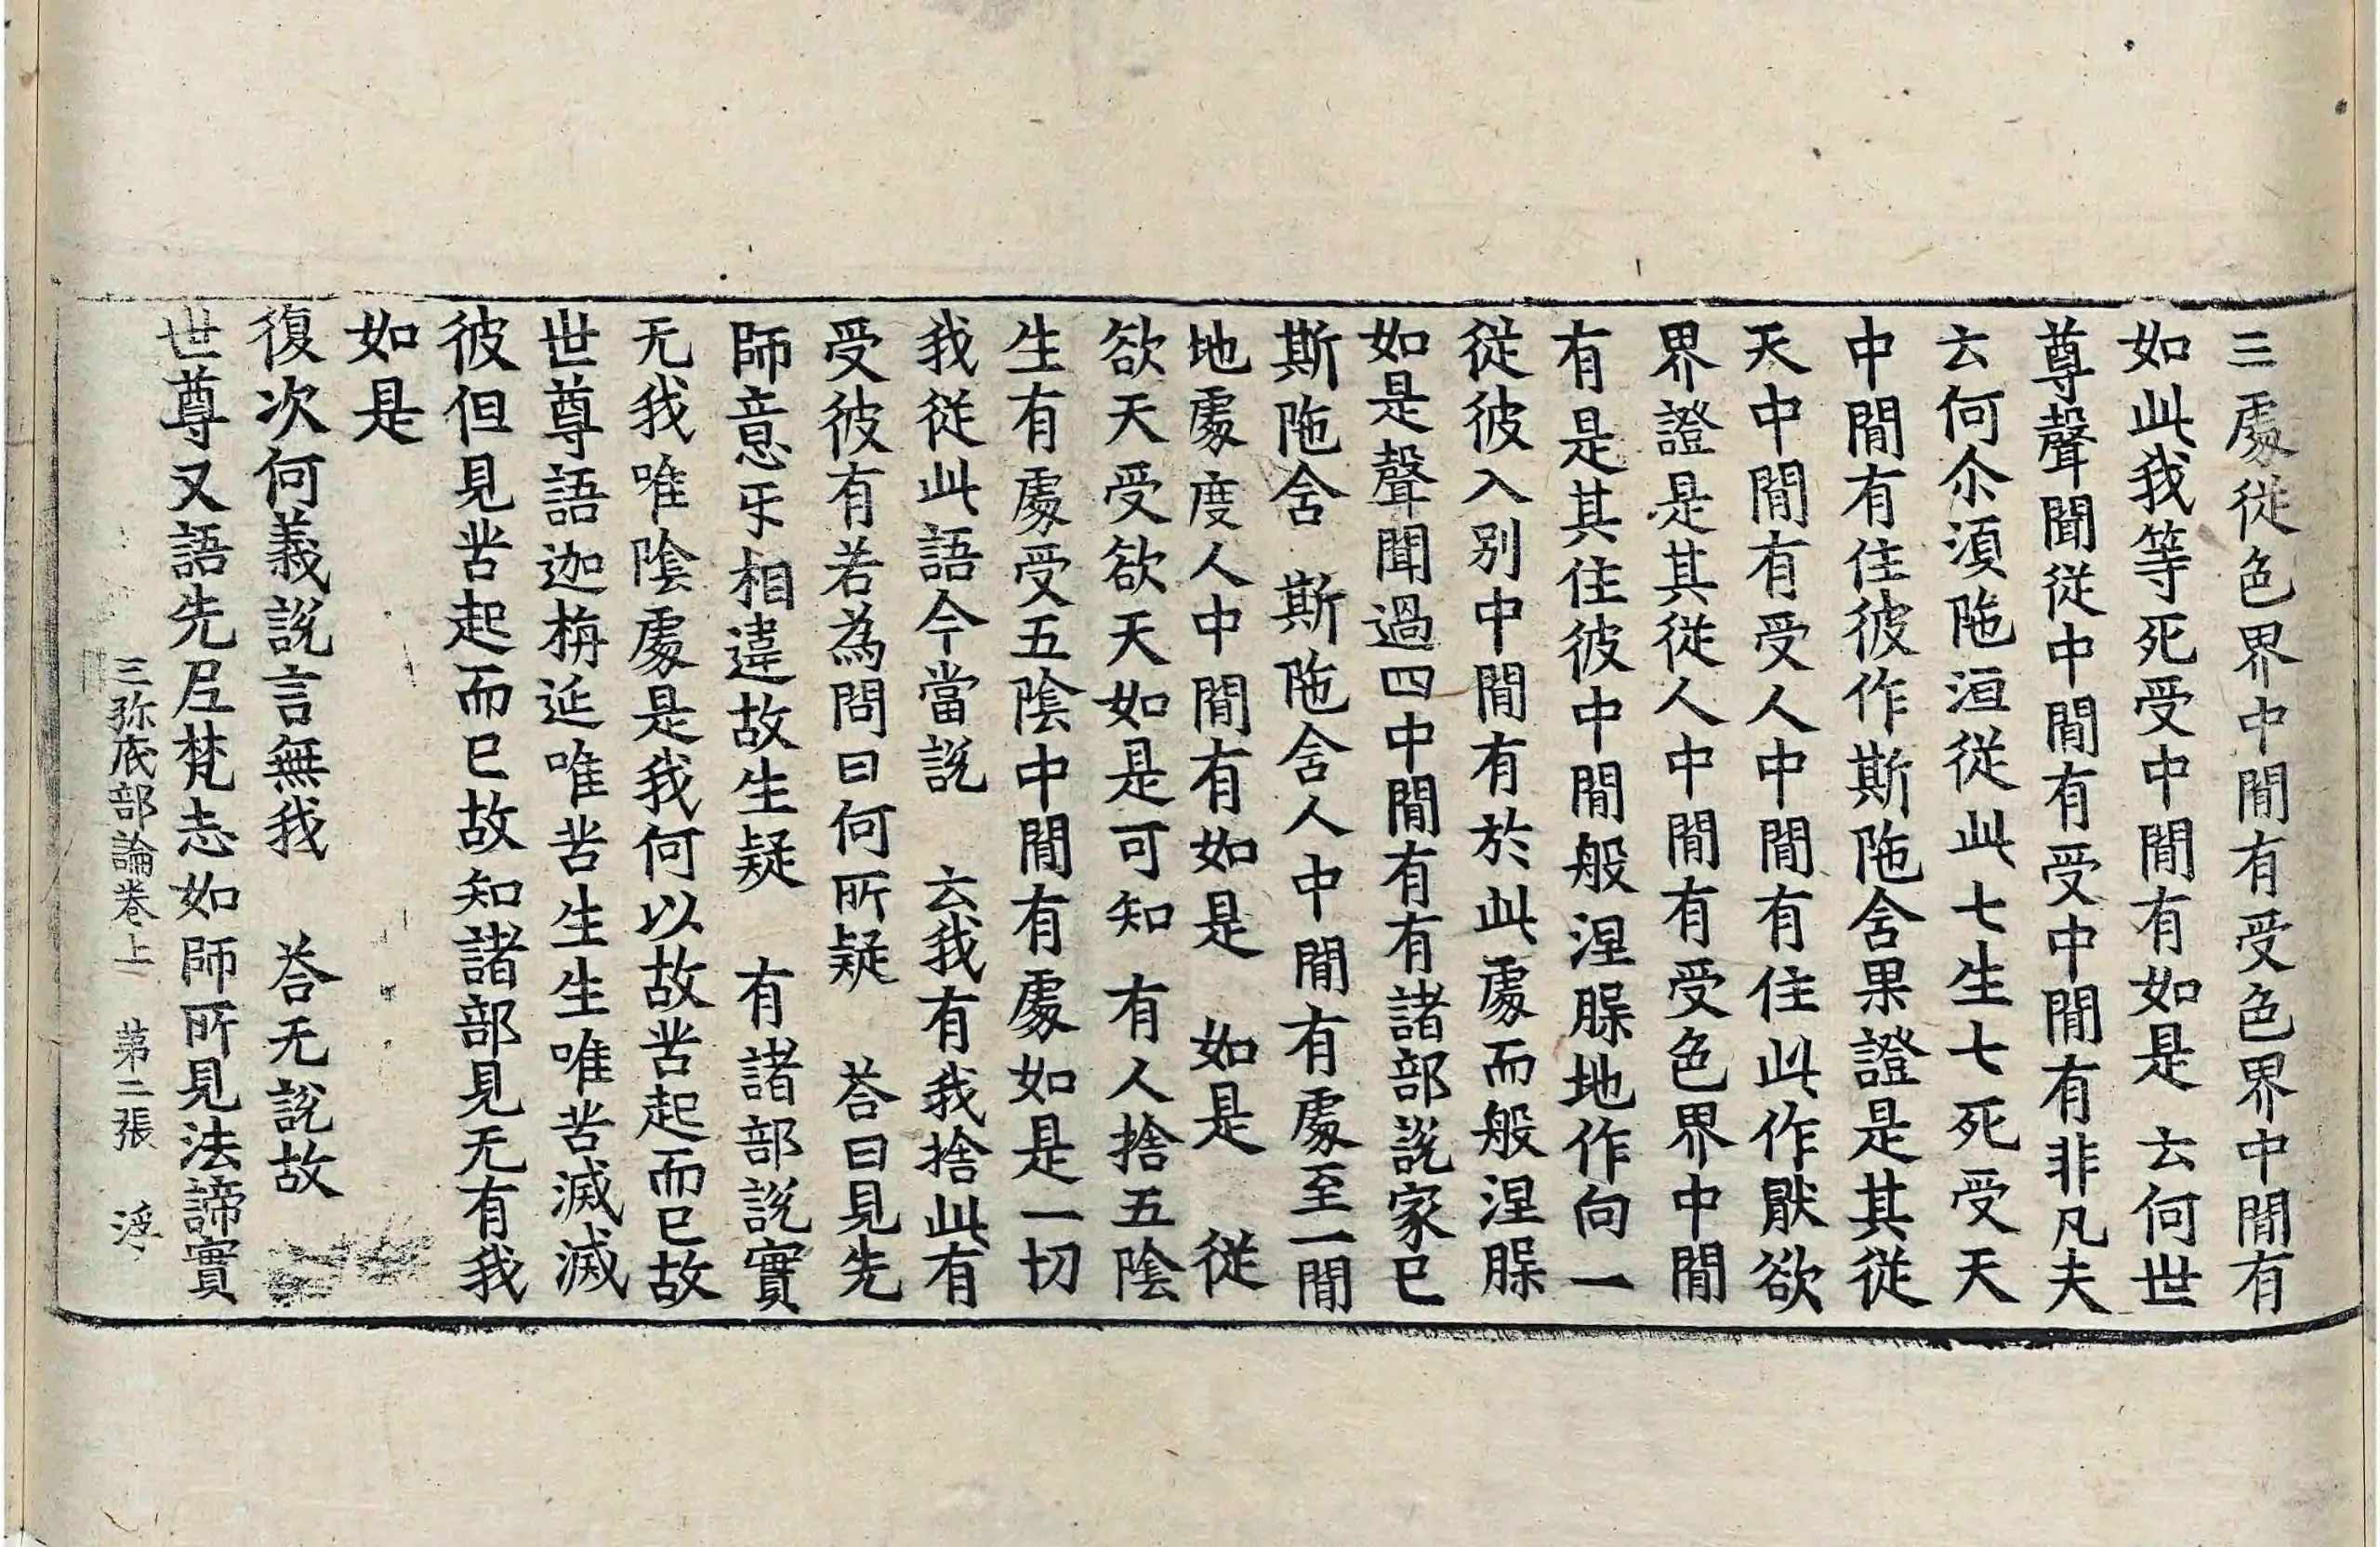 三處從色界中間有受色界中間有
如此我等死受中間有如是 云何世
尊聲聞從中間有受中間有非凡夫
云何尒湏陁洹從此七生七死受天
中間有住彼作斯陁含果證是其從
天中間有受人中間有住此作猒欲
界證是其從人中間有受色界中間
有是其住彼中間般涅脲地作向一
從彼入別中間有於此處而般涅脲
如是聲聞過四中間有有諸部說家已
斯陁含 斯陁含人中間有處至一間
地處度人中間有如是 如是 從
欲天受欲天如是可知 有人捨五陰
生有處受五陰中間有處如是一切
我從此語今當說 云我有我捨此有
受彼有若為問曰何所疑 荅曰見先
師意乐相違故生疑 有諸部說實
无我唯陰處是我何以故苦起而已故
世尊語迦栴延唯苦生生唯苦滅滅
彼但見苦起而已故知諸部見无有我
如是
復次何義說言無我 荅无說故
世尊又語先尼梵志如師所見法諦實
三弥底部論卷上 第二張 浮